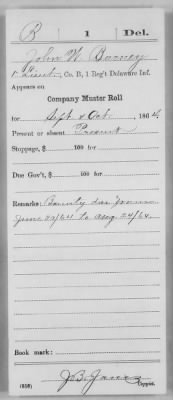 B 1 Del.
John W. Barney
Lieut, Co. B, 1 Reg't Delaware Inf.
Appears on
Company Muster Roll
for Sept & Oct, 1864
Present or absent Present
Stoppage, $ 100 for
Due Gov't, $ 100 for
Remarks: Bounty due from
June 20/64 to Aug. 24/64
Book mark:
(858) Copyist.